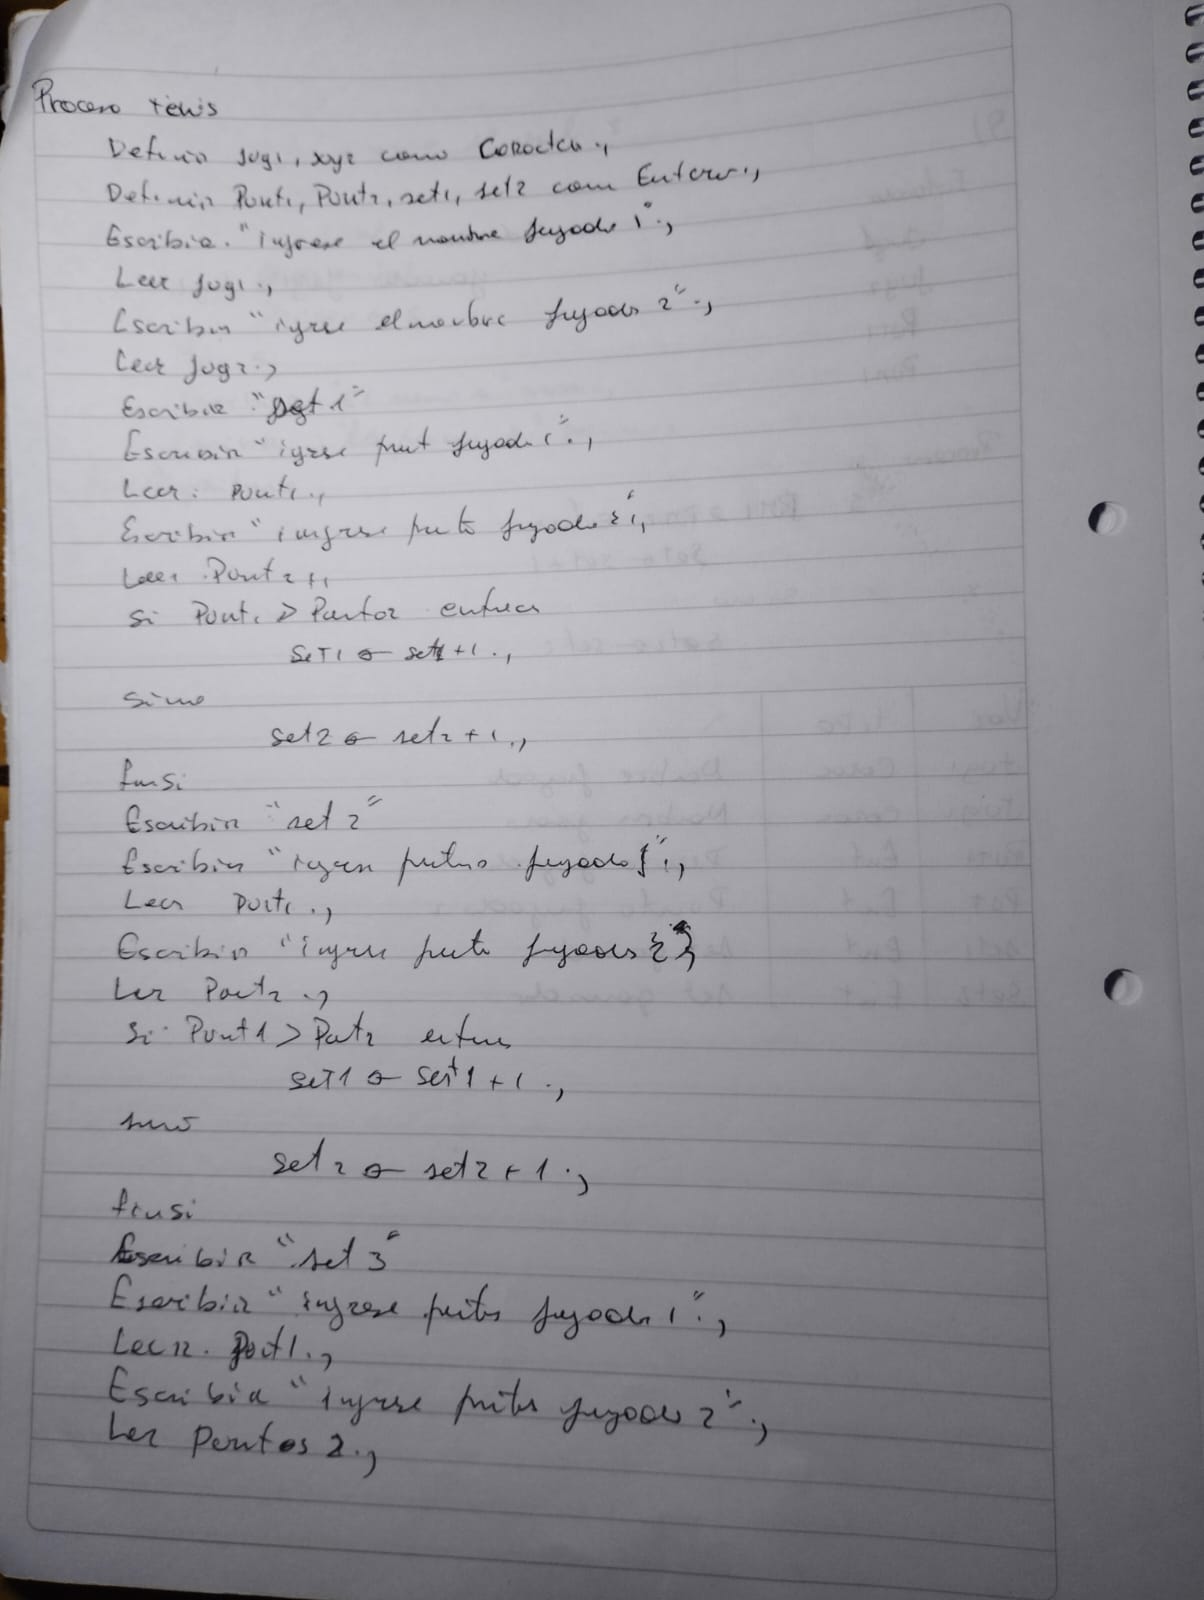 Proceso tenis
Definir jug1, jug2 como Caracter.,
Definir Punt1, Punt2, set1, set2 com Enteros.,
Escribir. "ingrese el nombre jugador 1".,
Leer jug1.,
Escribir "igrse el nombre jugador 2".,
Leer jug2.,
Escribir "set 1"
Escribir "igrse punt jugador 1".,
Leer: Punt1.,
Escribir "ingrese punto jugador 2",
Leer Punt2.,
si Punt1 > Punto2 entonces
SeT1 ← set1 + 1.,
sino
set2 ← set2 + 1.,
finsi
Escribir "set 2"
Escribir "ingrese puntos jugador 1".,
Leer Punt1.,
Escribir "ingrse punto jugador 2
Ler Punt2.,
Si Punt1 > Punt2
seT1 ← set1 + 1.,
sino
set2 ← set2 + 1.,
finsi
Escribir "set 3"
Escribir "ingrese puntos jugador 1".,
Leer. Punt1.,
Escribir "ingrese puntos jugador 2".,
Ler Puntos 2.,